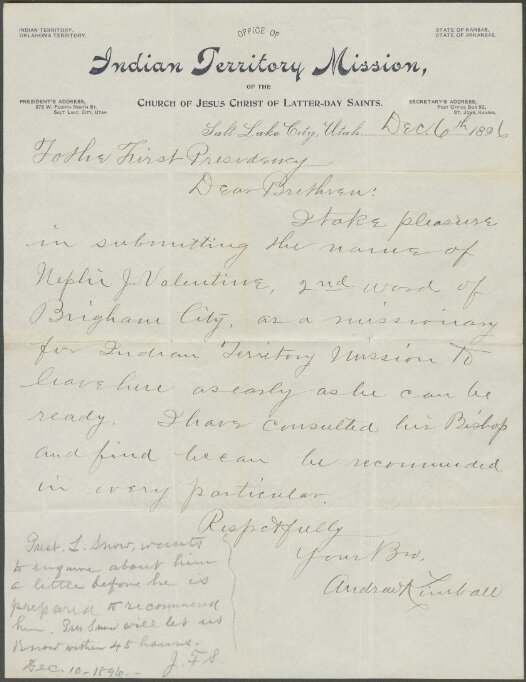 INDIAN TERRITORY.
OKLAHOMA TERRITORY.
OFFICE OF
STATE OF KANSAS.
STATE OF ARKANSAS.
Indian Territory Mission,
OF THE
PRESIDENT'S ADDRESS,
375 W. FOURTH NORTH ST.
SALT LAKE CITY, UTAH
CHURCH OF JESUS CHRIST OF LATTER-DAY SAINTS.
SECRETARY'S ADDRESS,
POST OFFICE BOX 93,
ST. JOHN, KANSAS.
Salt Lake City, Utah. Dec. 6th 1896
To the First Presidency
Dear Brethren:
I take pleasure
in submitting the name of
Nephi J. Valentine, 2nd ward of
Brigham City, as a missionary
for Indian Territory Mission to
leave here as early as he can be
ready. I have consulted his Bishop
and find he can be recommended
in every particular.
Respectfully
Your Bro.
Andrew Kimball
Prest. L. Snow, wants
to enquire about him
a little before he is
prepared to recommend
him. Pres Snow will let us
know within 48 hours.
Dec. 10-1896.- J. F. S.